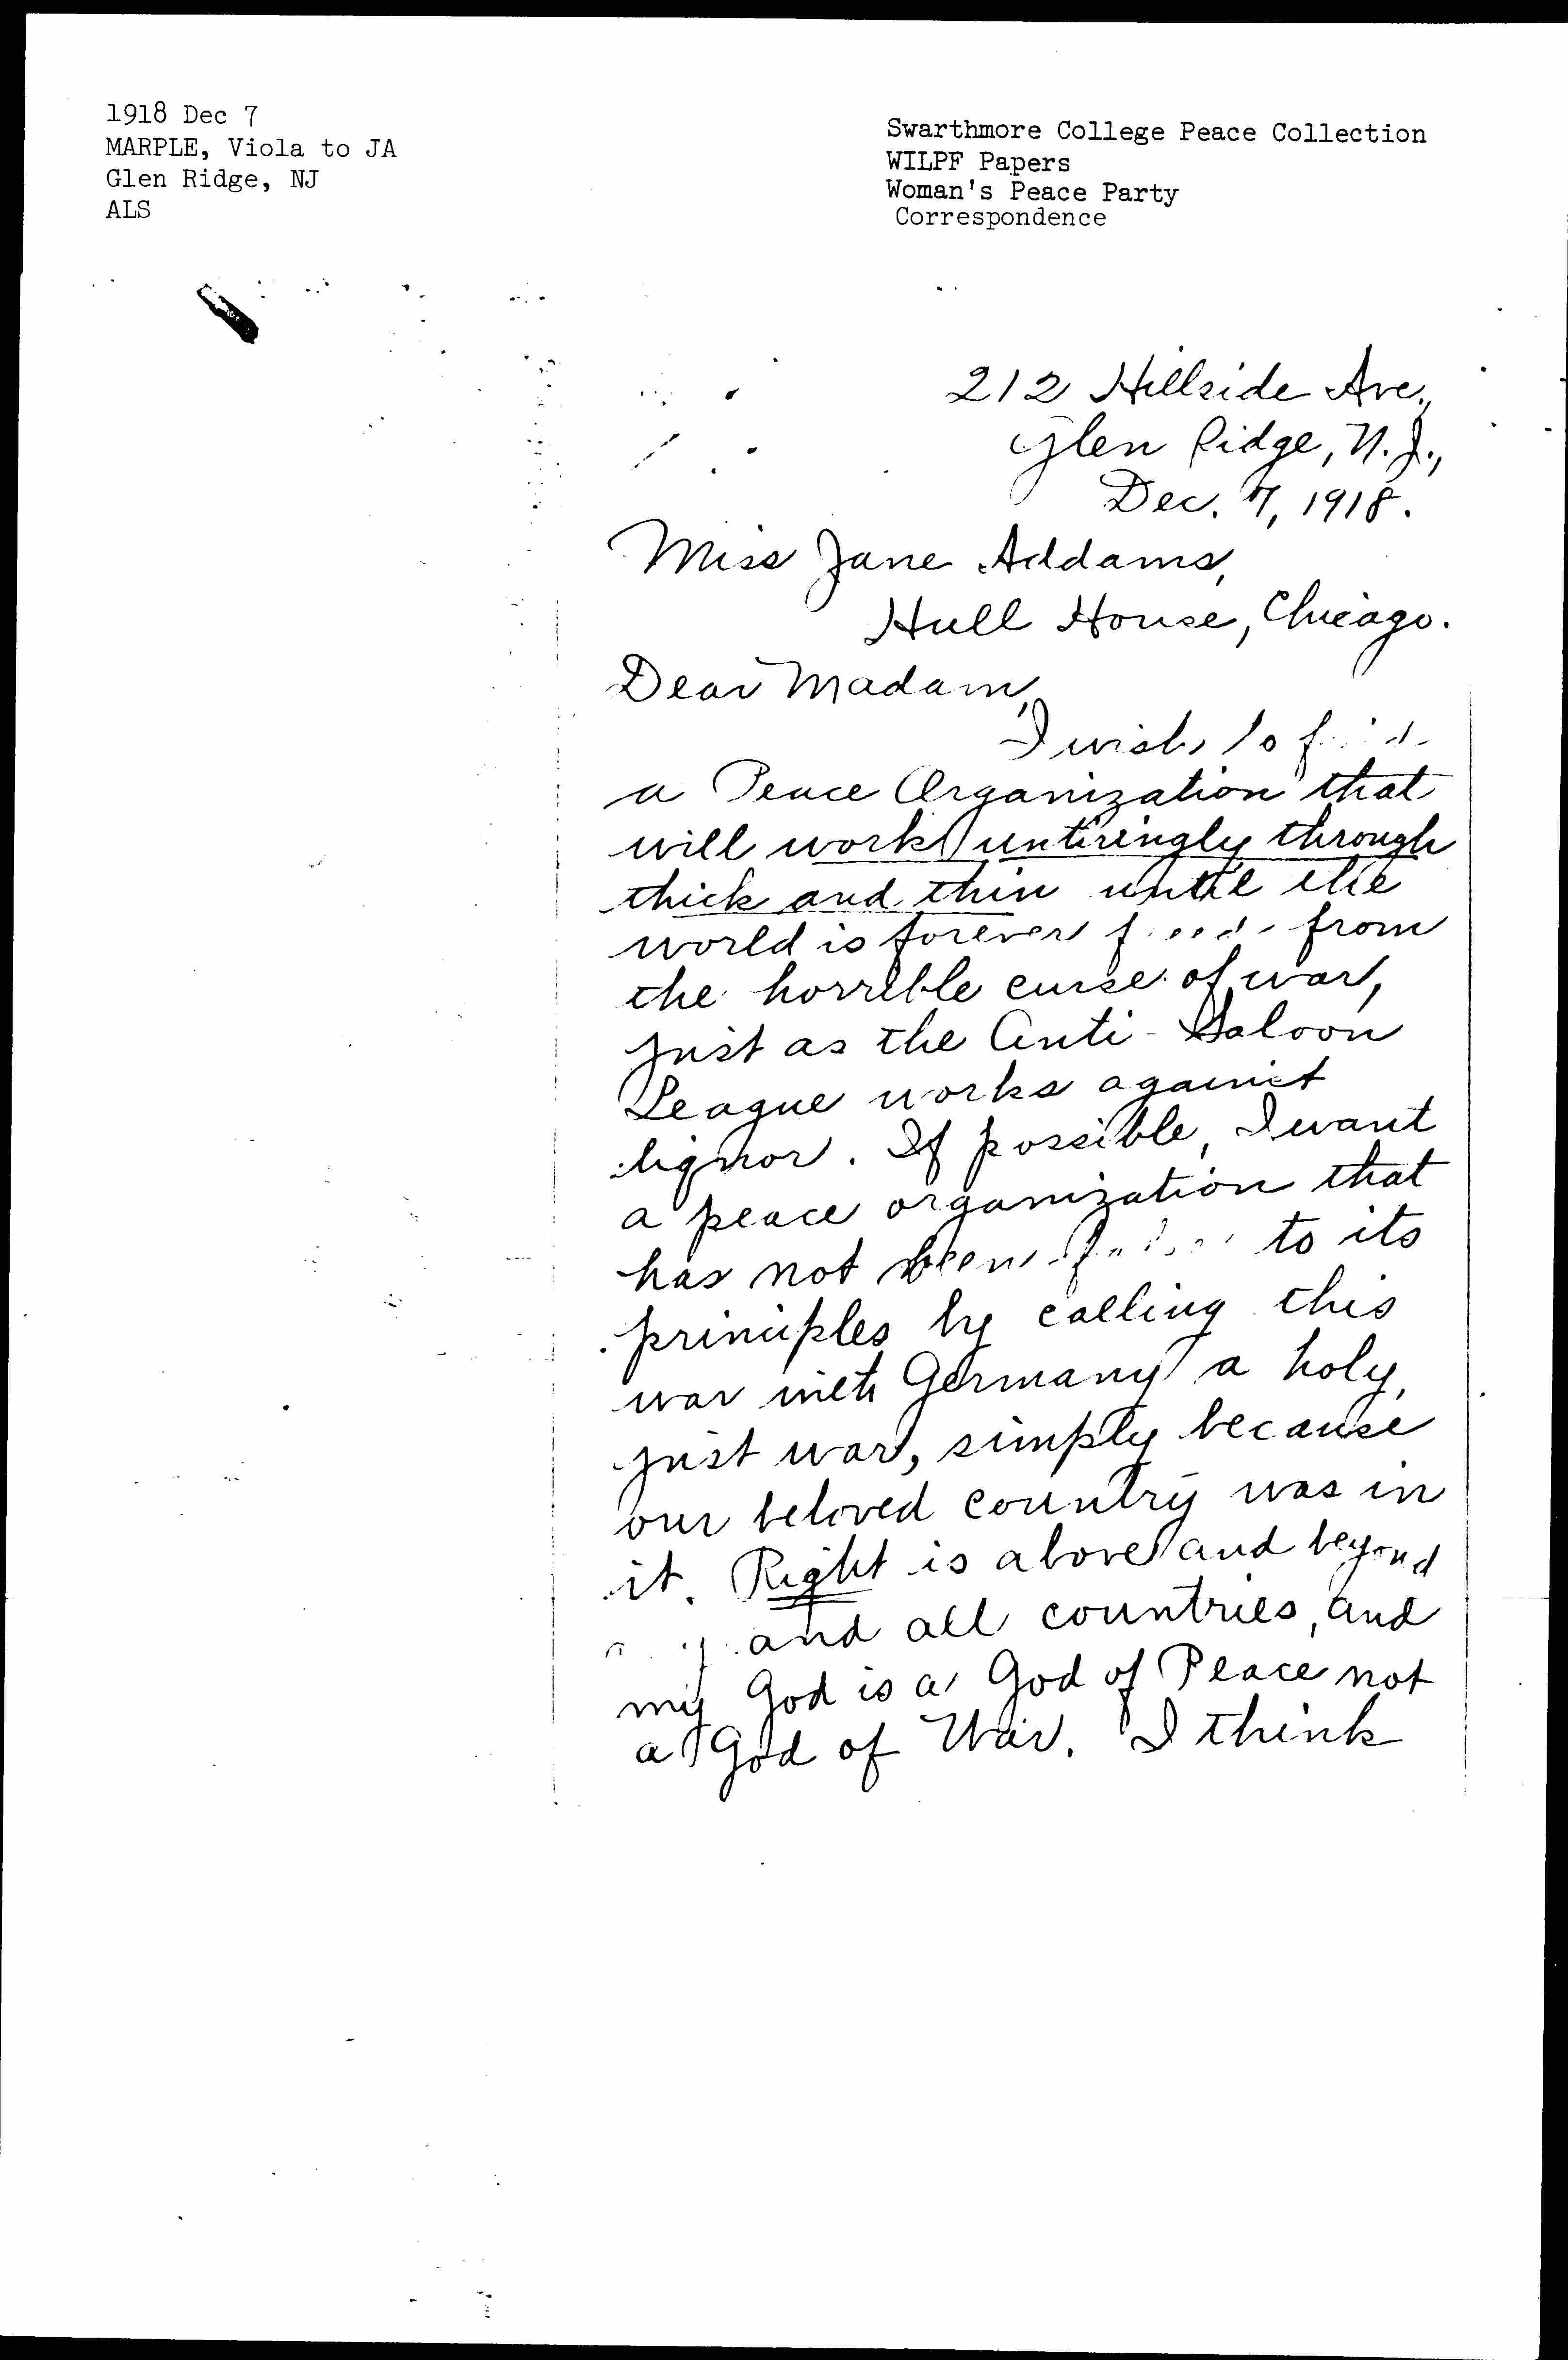 1918 Dec 7
MARPLE, Viola to JA
Glen Ridge, NJ
ALS
Swarthmore College Peace Collection
WILPF Papers
Woman's Peace Party
Correspondence
212 Hillside Ave.,
Glen Ridge, N.J.,
Dec. 7, 1918.
Miss Jane Addams,
Hull House, Chicago.
Dear Madam,
I wish to find
a Peace Organization that
will work untiringly through
thick and thin until the
world is forever freed from
the horrible curse of war,
just as the Anti-Saloon
League works against
liquor. If possible, I want
a peace organization that
has not been to its
principles by calling this
war with Germany a holy,
just war, simply because
our beloved country was in
it. Right is above and beyond
and all countries, and
my God is a God of Peace not
a God of War. I think